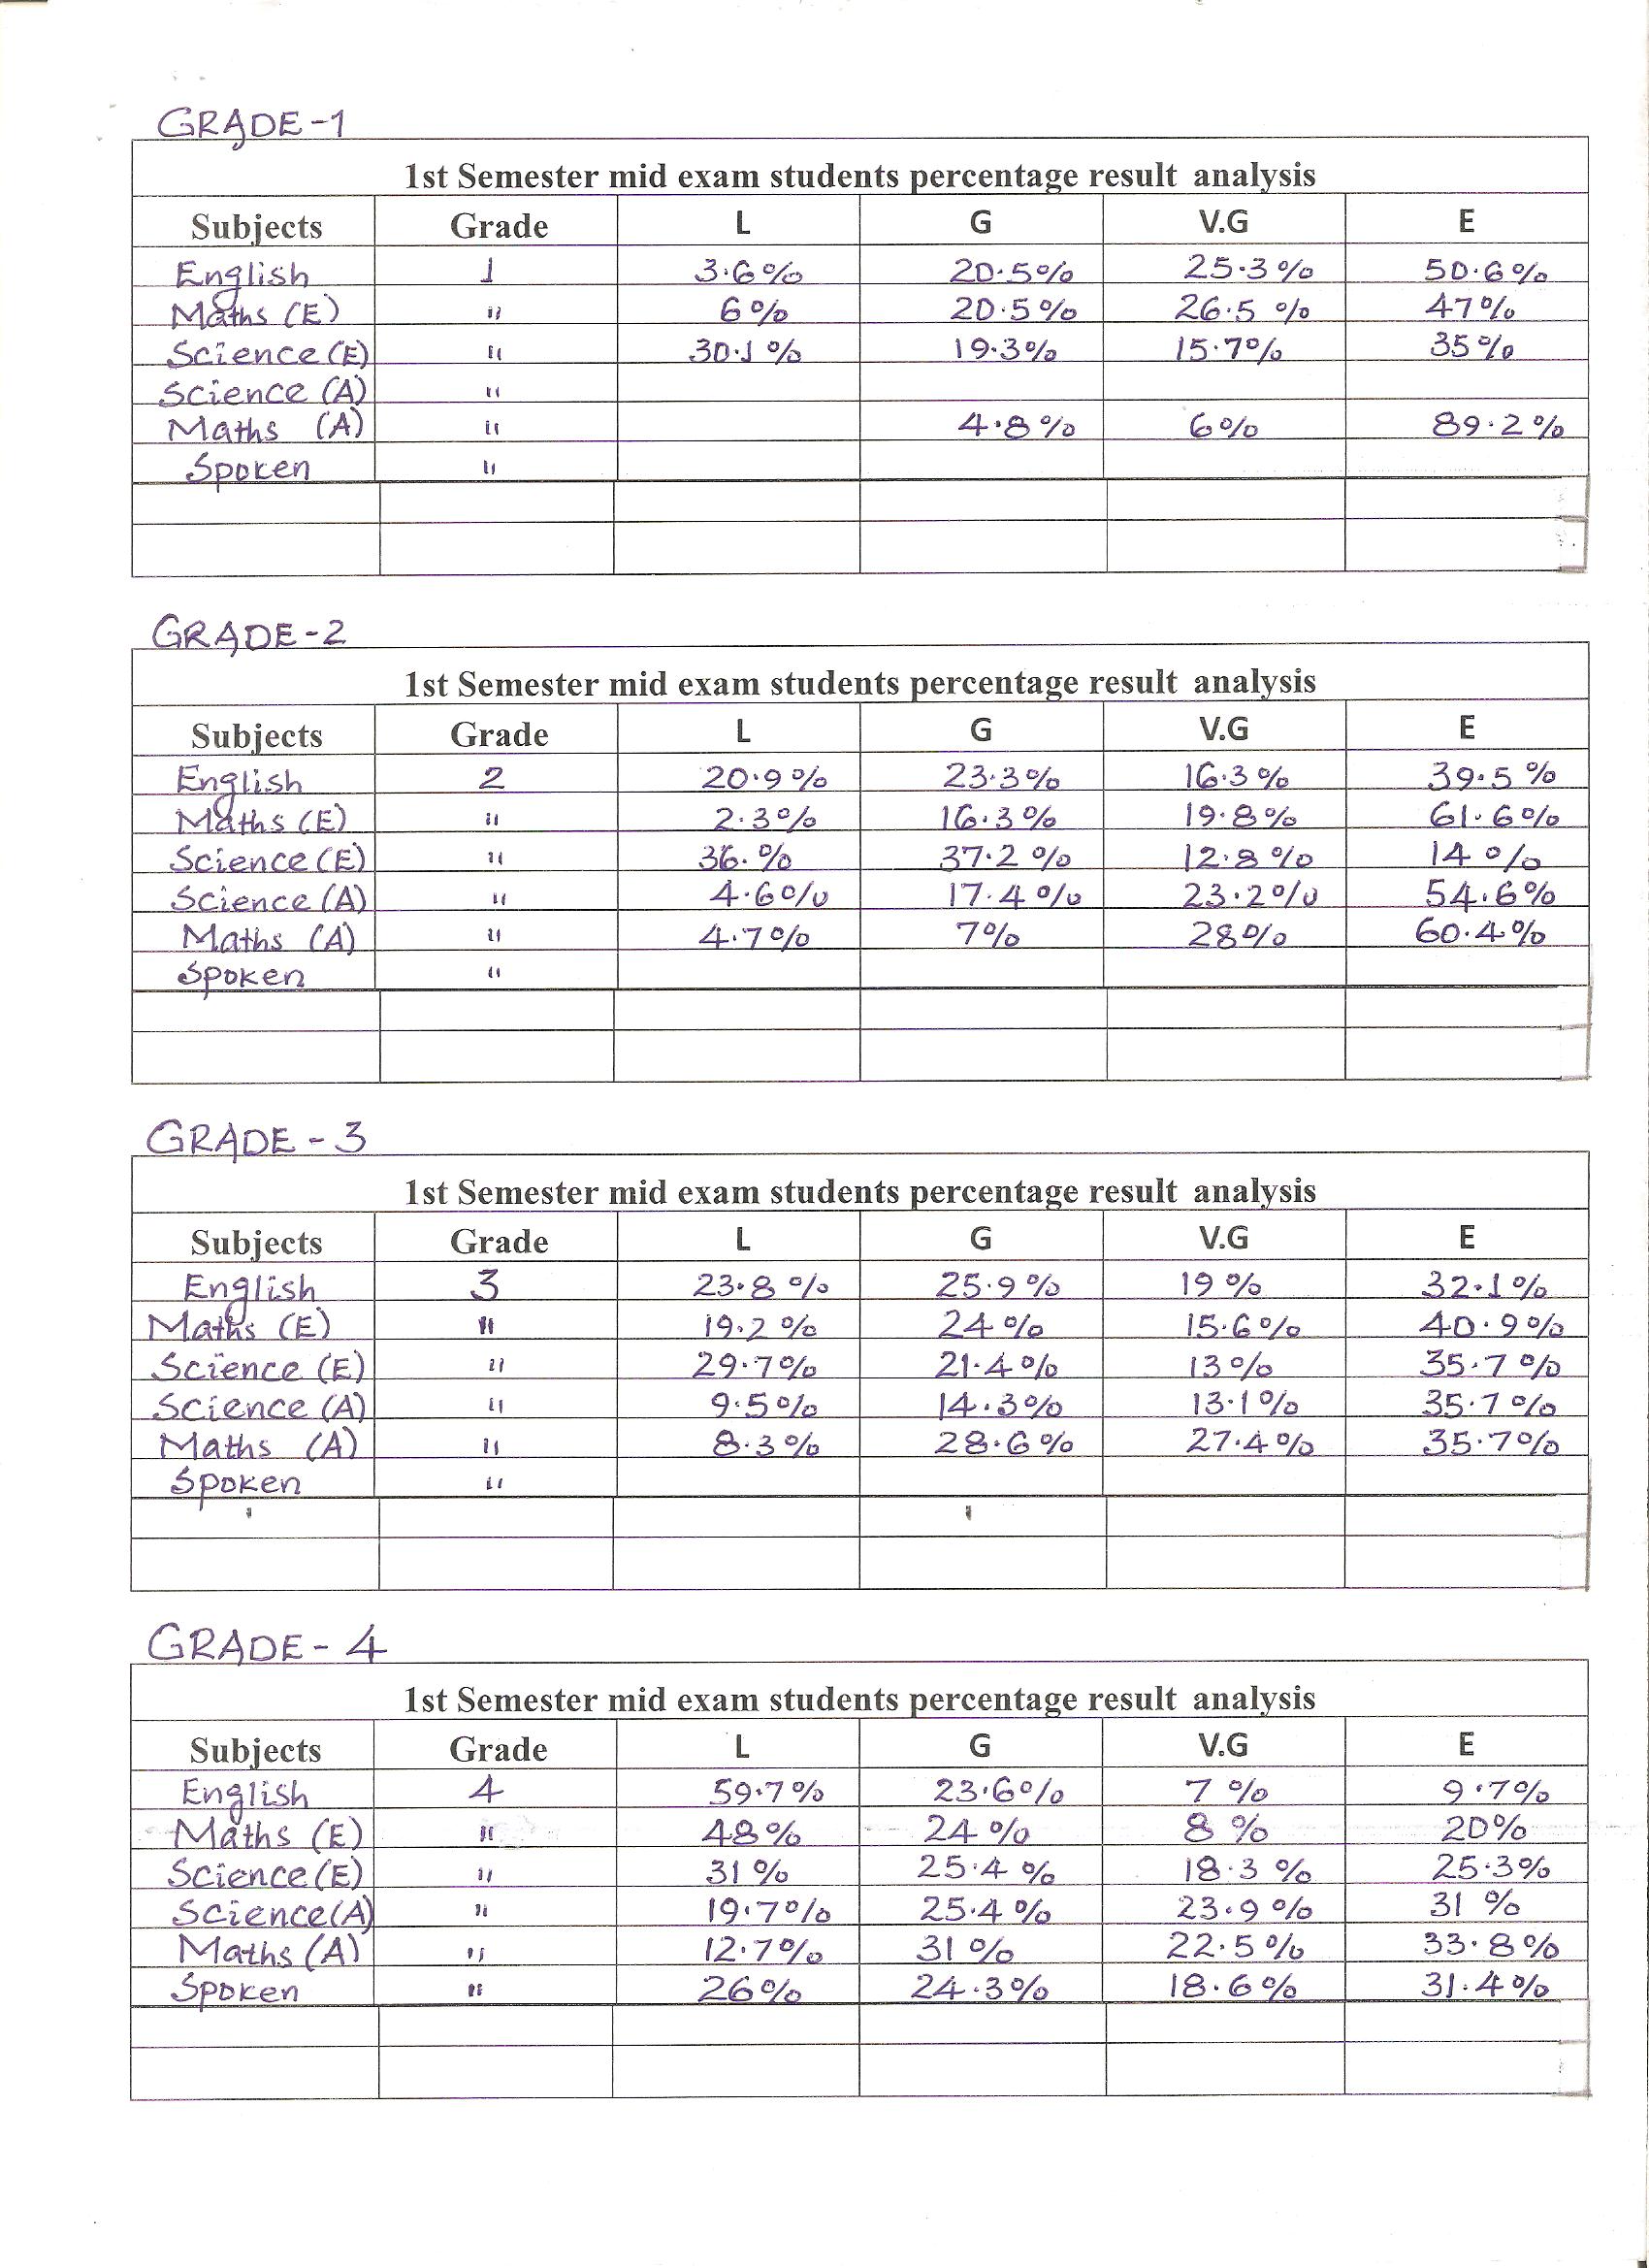 GRADE-1
1st Semester mid exam students percentage result analysis
Subjects Grade L G V.G E
English 1 3.6% 20.5% 25.3% 50.6%
Maths (E) " 6% 20.5% 26.5 % 47%
Science (E) " 30.1 % 19.3% 15.7% 35%
Science (A) "
Maths (A) " 4.8% 6% 89.2%
Spoken "
GRADE-2
1st Semester mid exam students percentage result analysis
Subjects Grade L G V.G E
English 2 20.9% 23.3% 16.3% 39.5 %
Maths (E) " 2.3% 16.3% 19.8% 61.6%
Science (E) " 36.% 37.2 % 12.8 % 14 %
Science (A) " 4.6% 17.4% 23.2% 54.6%
Maths (A) " 4.7% 7% 28% 60.4%
Spoken "
GRADE - 3
1st Semester mid exam students percentage result analysis
Subjects Grade L G V.G E
English 3 23.8 % 25.9 % 19 % 32.1%
Maths (E) " 19.2 % 24 % 15.6% 40.9%
Science (E) " 29.7% 21.4% 13% 35.7 %
Science (A) " 9.5% 14.3% 13.1% 35.7%
Maths (A) " 8.3% 28.6% 27.4% 35.7%
Spoken "
GRADE - 4
1st Semester mid exam students percentage result analysis
Subjects Grade L G V.G E
English 4 59.7% 23.6% 7 % 9.7%
Maths (E) " 48% 24 % 8 % 20%
Science (E) " 31 % 25.4 % 18.3 % 25.3%
Science (A) " 19.7% 25.4 % 23.9 % 31 %
Maths (A) " 12.7% 31 % 22.5% 33.8%
Spoken " 26% 24.3% 18.6% 31.4%